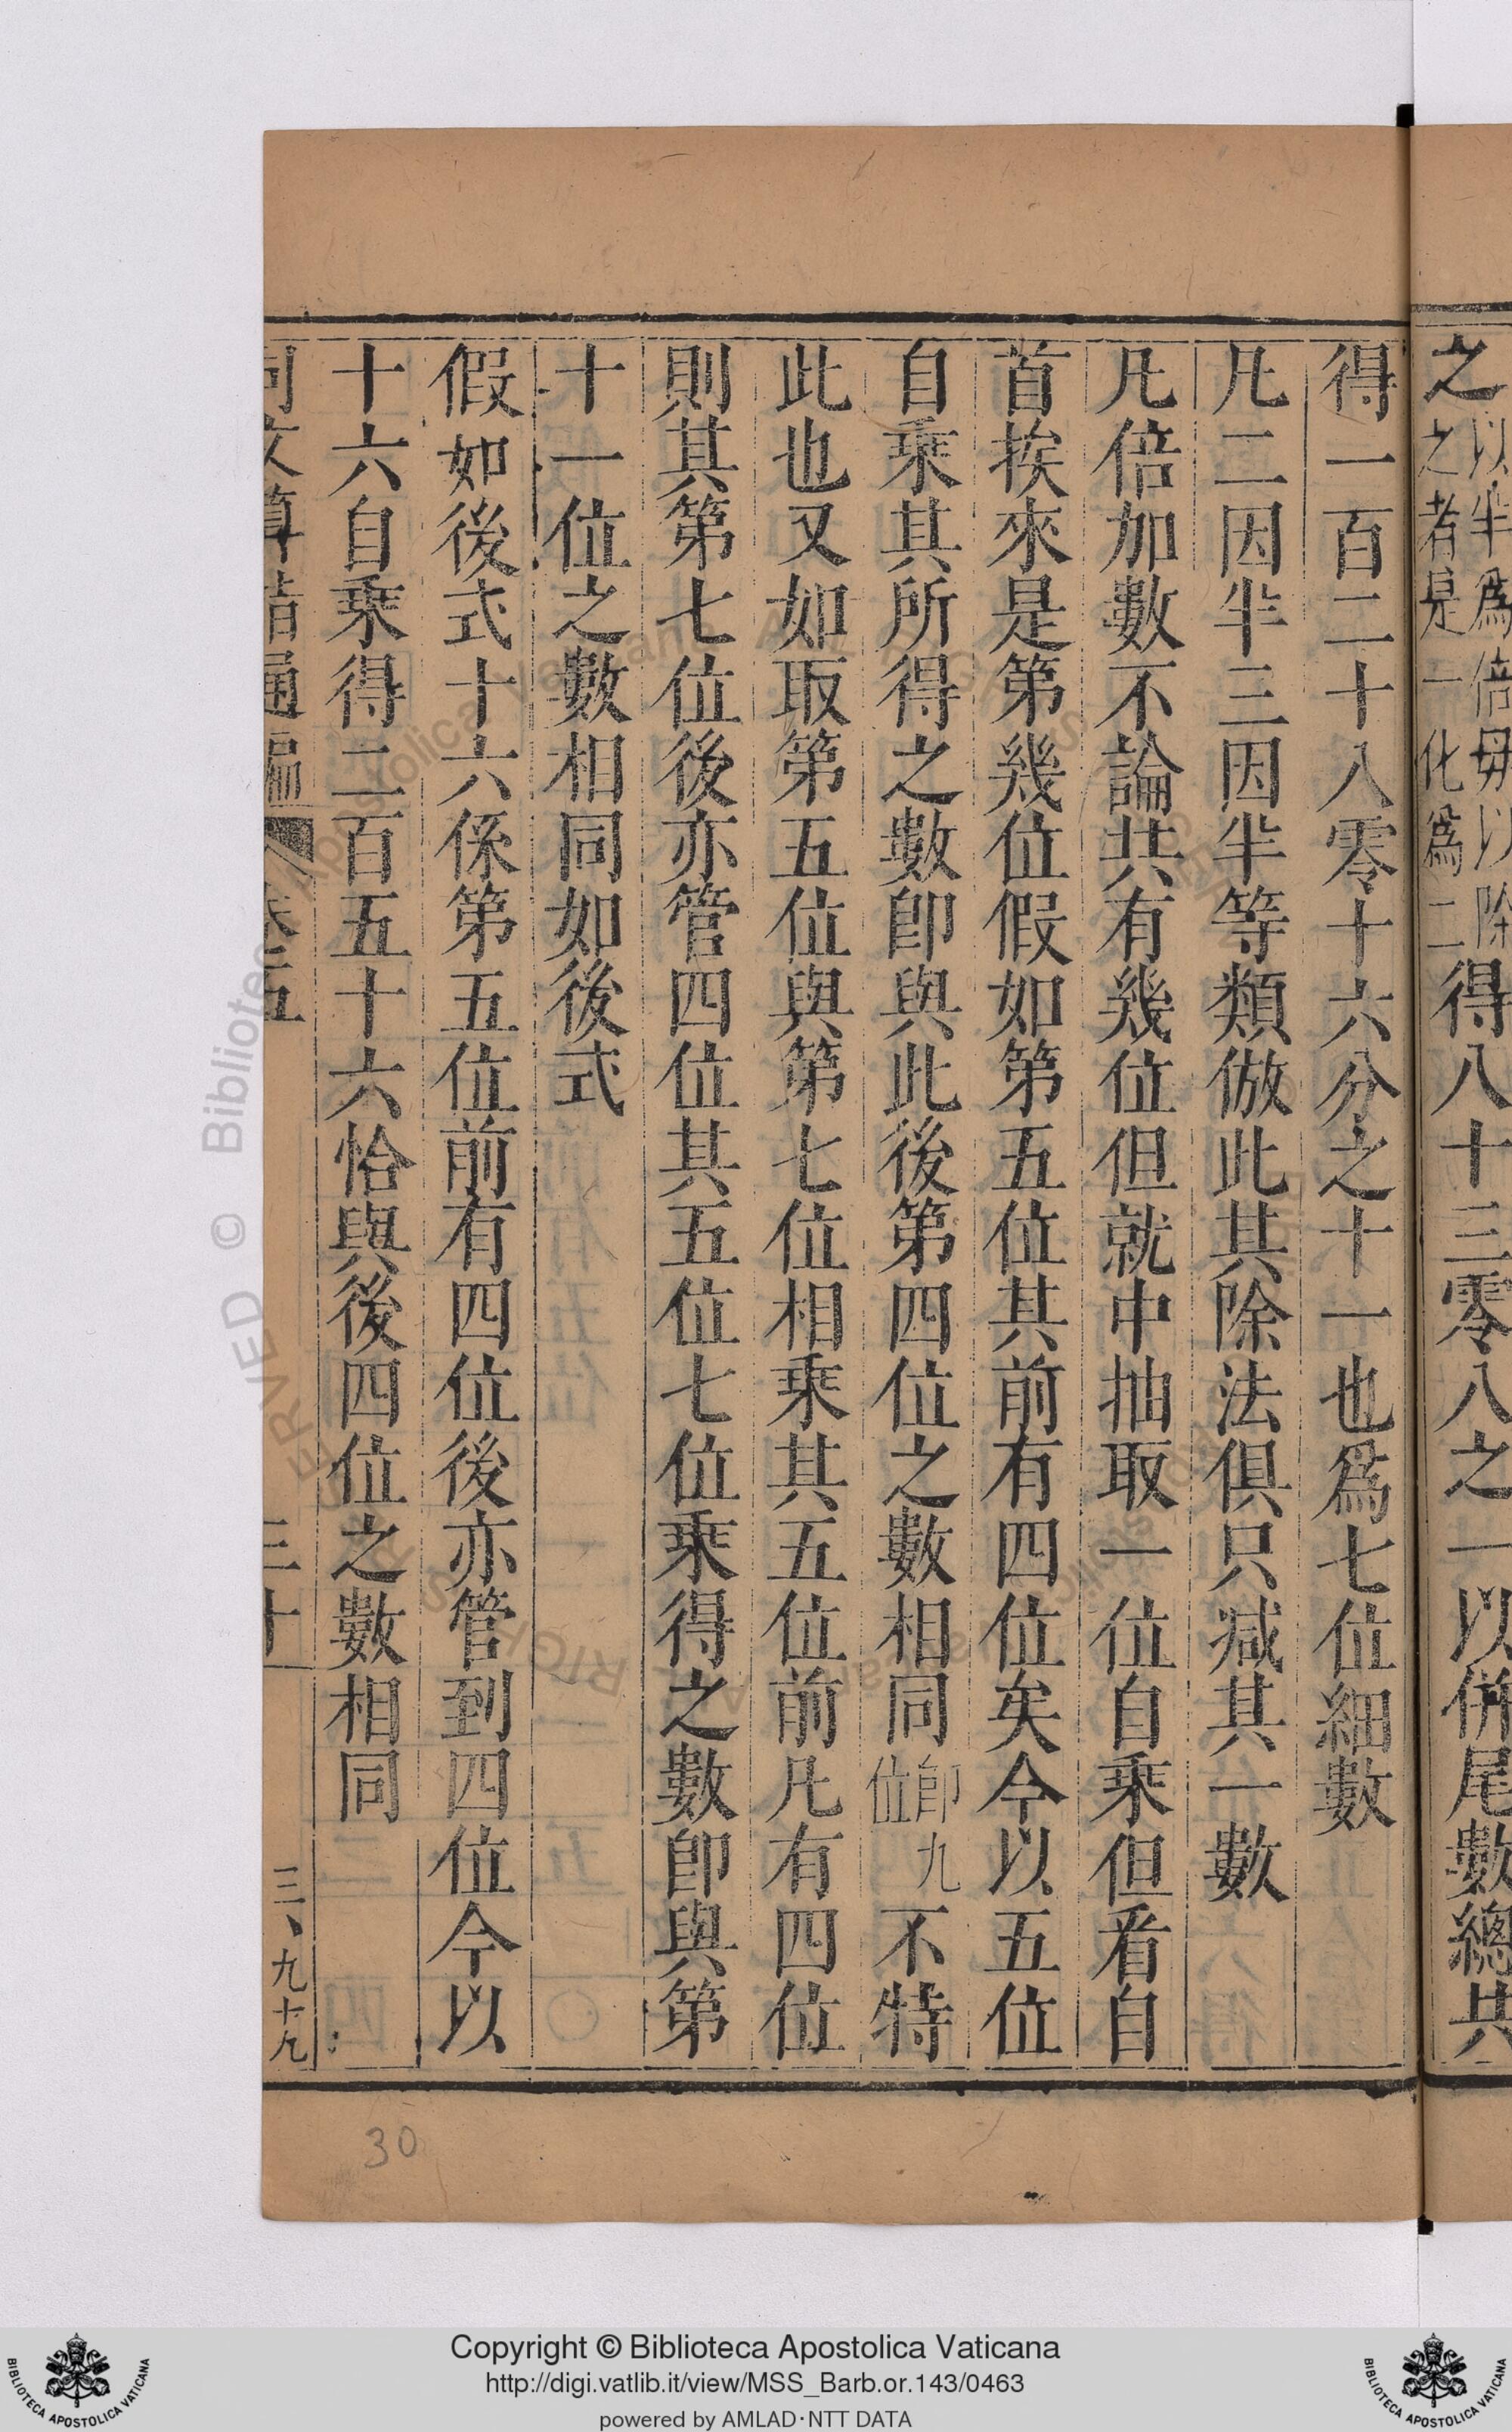 之以半爲倍毋以除之者是一化爲二得八十三零八之一以併尾數總共
得一百二十八零十六分之十一也爲七位細數
凡二因半三因半等類倣此其除法俱只减其一數
凡倍加數不論共有幾位但就中抽取一位自乘但看自
首挨來是第幾位假如第五位其前有四位矣今以五位
自乘其所得之數卽與此後第四位之數相同卽九位不特
此也又如取第五位與第七位相乘其五位前凡有四位
則其第七位後亦管四位其五位七位乘得之數卽與第
十一位之數相同如後式
假如後式十六係第五位前有四位後亦管到四位今以
十六自乘得二百五十六恰與後四位之數相同
同文算指通編 卷五 三十 三、九十九
30
© Biblioteca Apostolica Vaticana
Copyright © Biblioteca Apostolica Vaticana
http://digi.vatlib.it/view/MSS_Barb.or.143/0463
powered by AMLAD·NTT DATA
BIBLIOTECA APOSTOLICA VATICANA
BIBLIOTECA APOSTOLICA VATICANA